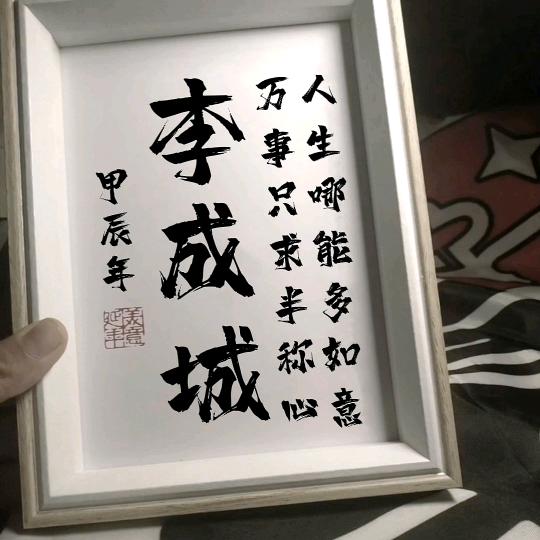 人生哪能多如意
万事只求半称心
李成城
甲辰年
美意延年